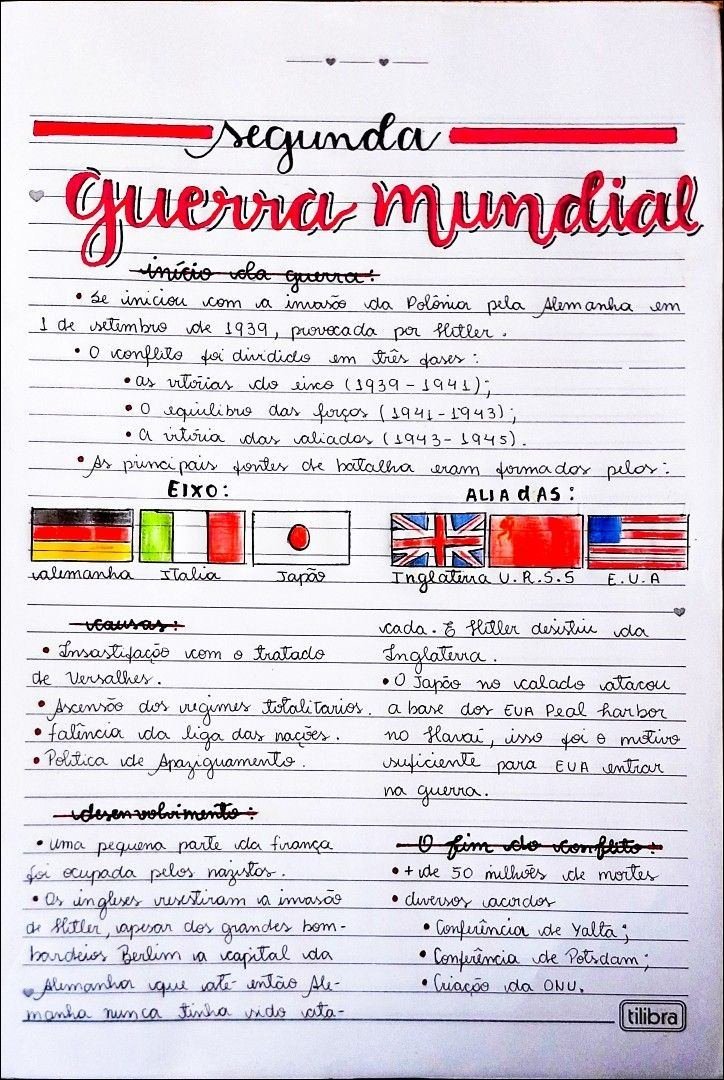 segunda
guerra mundial
início da guerra:
• Se iniciou com a invasão da Polônia pela Alemanha em
1 de setembro de 1939, provocada por Hitler.
• O conflito foi dividido em três fases:
• as vitórias do eixo (1939-1941);
• O equilíbro das forças (1941-1943);
• a vitória das aliados (1943-1945).
• As principais fontes de batalha eram formados pelos:
EIXO:
alemanha Itália Japão
ALIAdAS:
Inglaterra U.R.S.S E.U.A
causas:
• Insastifação com o tratado
de Versalhes.
• Ascensão dos regimes totalitários.
• falência da liga das nações.
• Política de Apaziguamento.
desenvolvimento:
• uma pequena parte da frança
foi ocupada pelos nazistas.
• Os ingleses resistiram a invasão
de Hitler, apesar dos grandes bom-
bardeios Berlim a capital da
Alemanha que até então Ale-
manha nunca tinha sido ata-
cada. E Hitler desistiu da
Inglaterra.
• O Japão no calado atacou
a base dos EUA Peal harbor
no Havaí, isso foi o motivo
suficiente para EUA entrar
na guerra.
O fim do conflito:
• + de 50 milhões de mortes
• diversos acordos
• Conferência de Yalta;
• Conferência de Potsdam;
• Criação da ONU.
tilibra